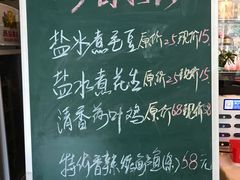 盐水煮毛豆原价25现价15
盐水煮花生原价25特价15
清香荷叶鸡原价68现价58
特价香辣烤海鱼(条)68元